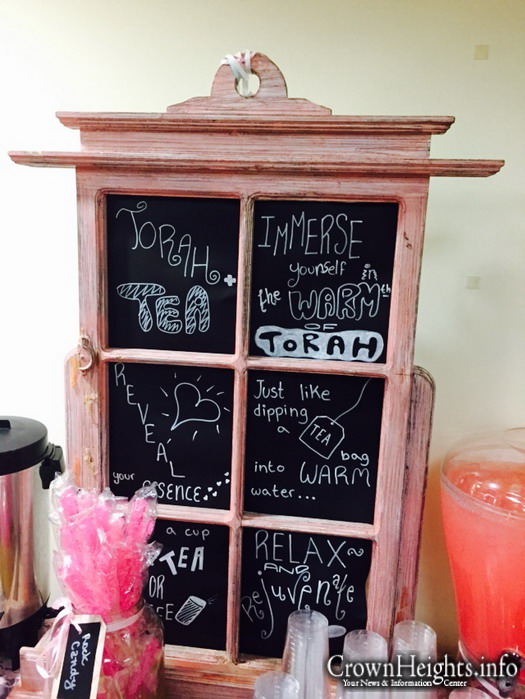 TORAH
+
TEA
IMMERSE
yourself in
the WARMth
OF
TORAH
REVEAL
your ESSENCE
Just like
dipping
a TEA bag
into WARM
water...
a cup
TEA
OR
RELAX~
AND
Rejuvenate
Rock
Candy
CrownHeights.info
Your News & Information Center